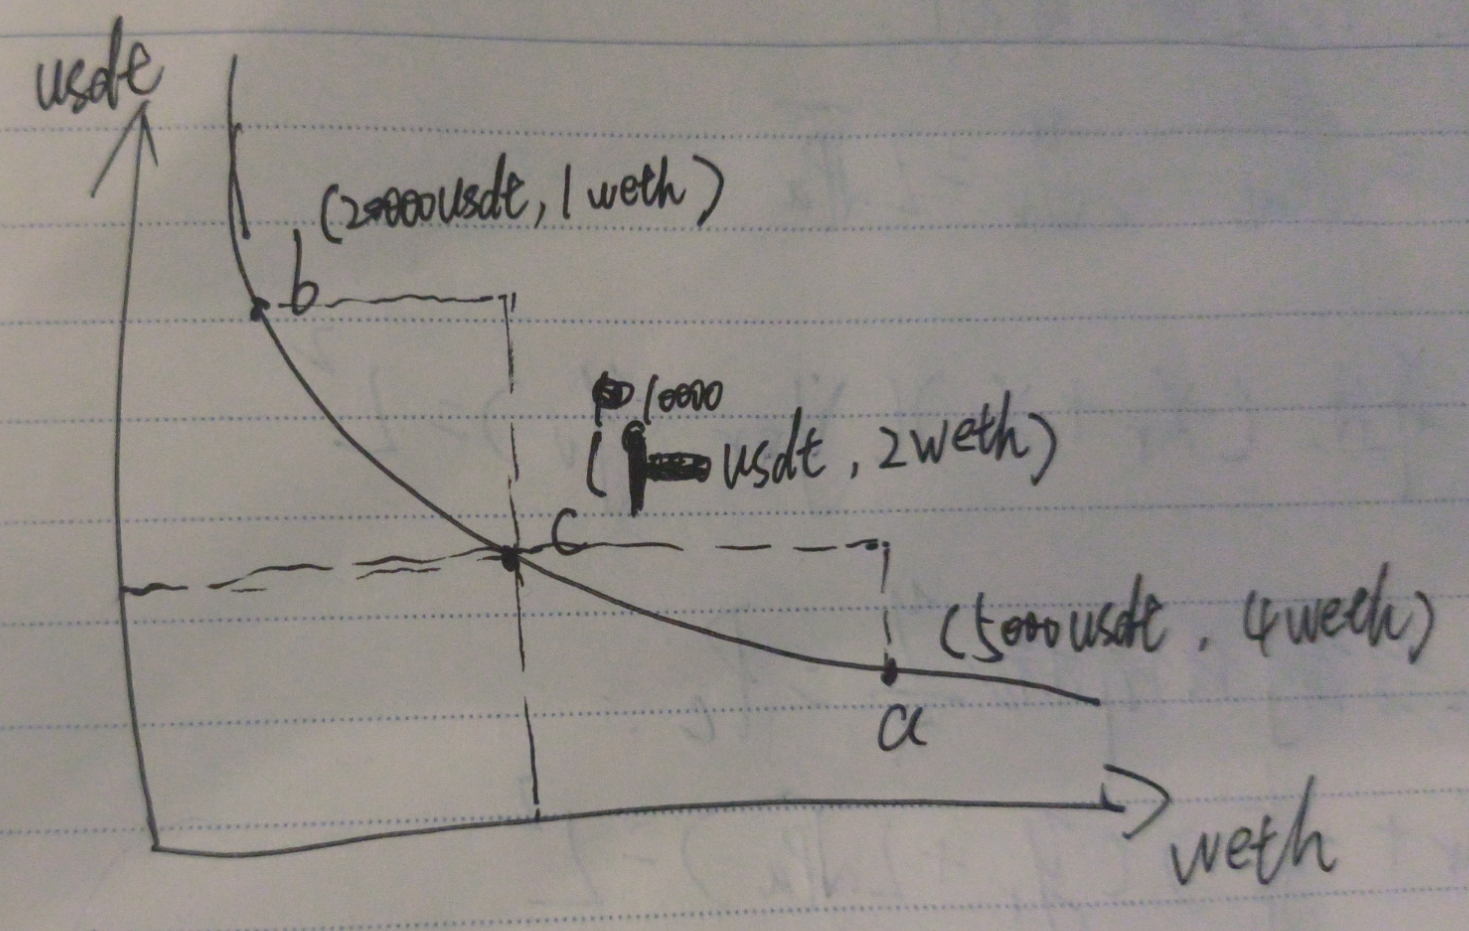 usdt
(20000usdt, 1 weth)
b
10000
( usdt, 2weth)
c
(5000usdt, 4weth)
a
weth